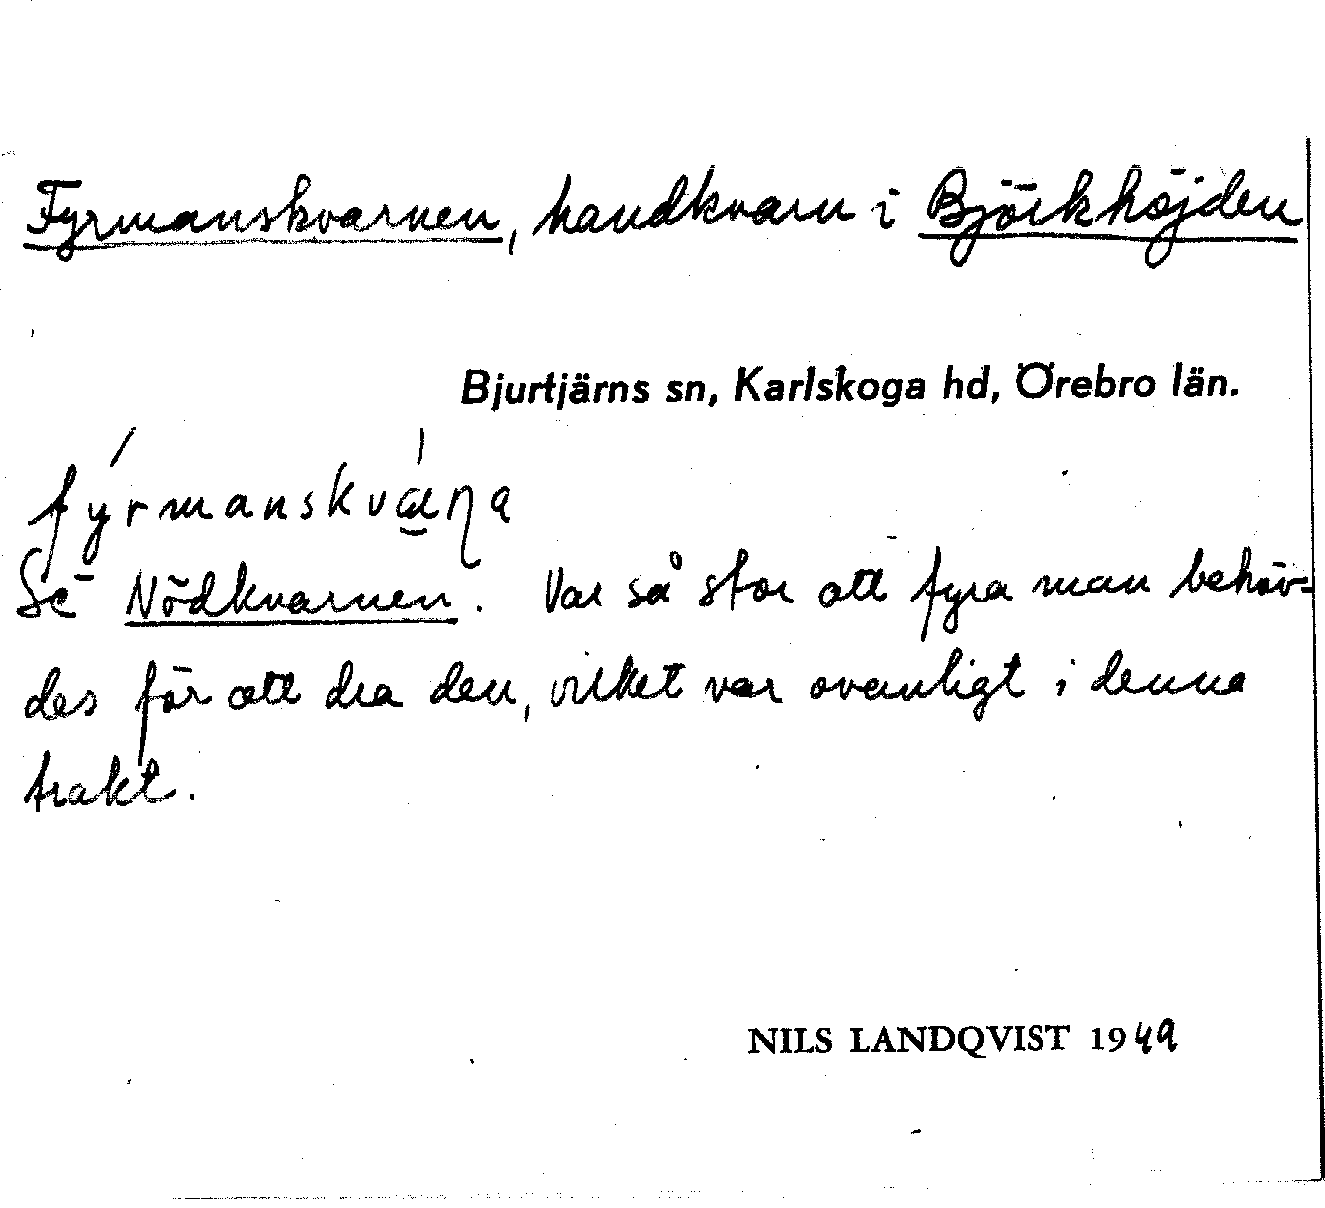 Fyrmanskvarnen, handkvarn i Björkhöjden
Bjurtjärns sn, Karlskoga hd, Örebro län.
Se Nödkvarnen. Var så stor att fyra man behöv-
des för att dra den, vilket var ovanligt i denna
trakt.
NILS LANDQVIST 1949